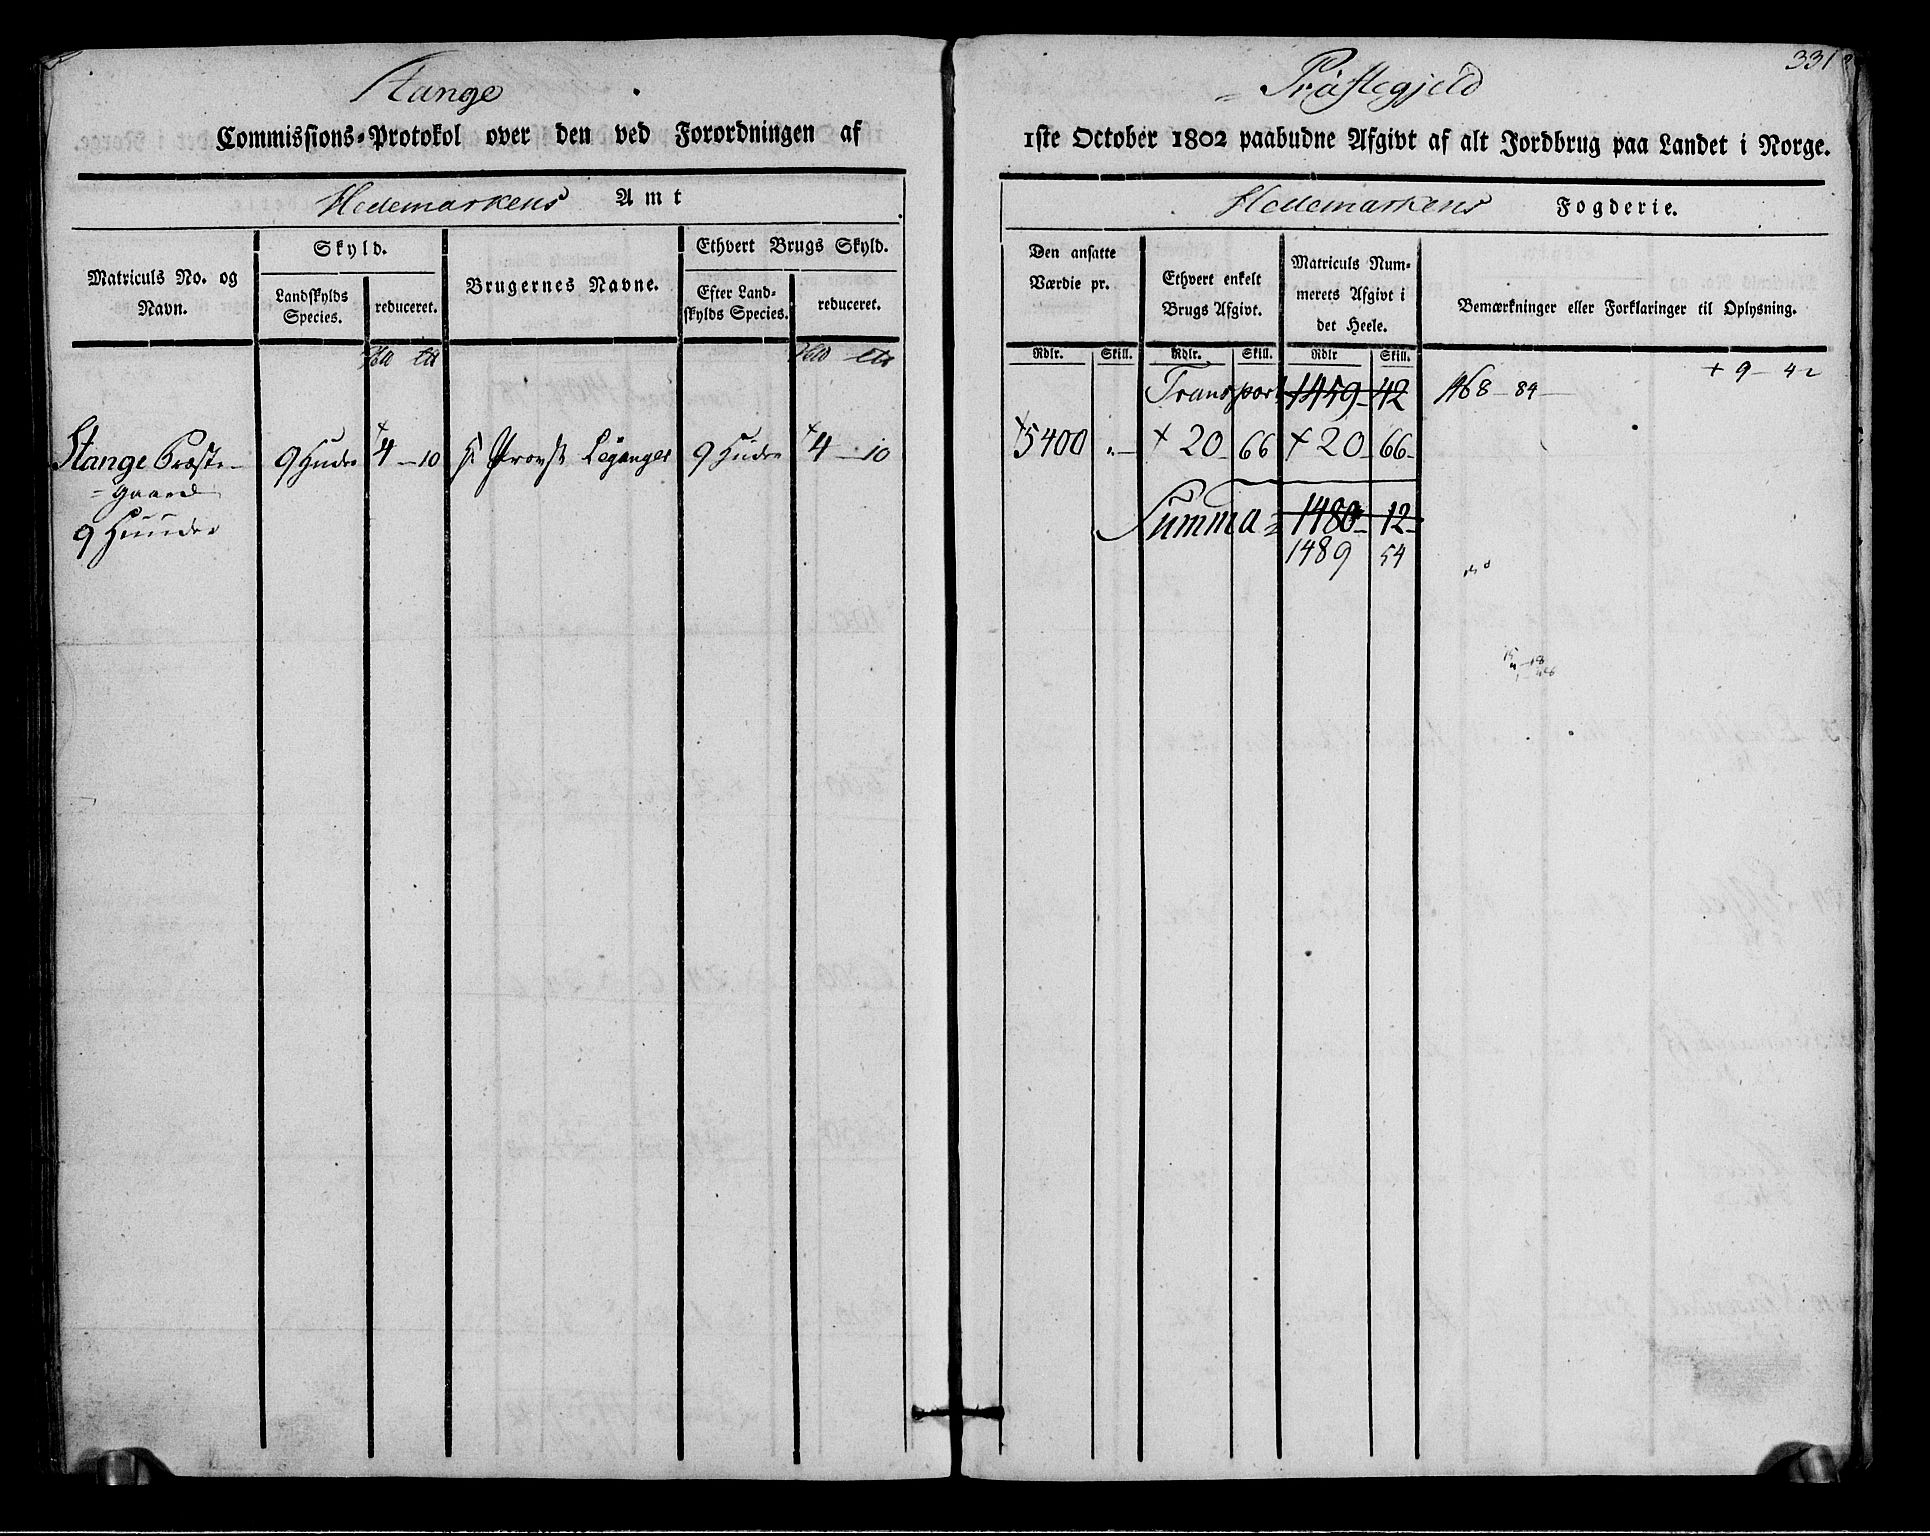 331
Stange
Commissions-Protokol over den ved Forordningen af
Hedemarkens Amt
Matriculs No. og Navn.
Skyld.
Landskylds Species.
reduceret.
Brugernes Navne.
Ethvert Brugs Skyld.
Efter Landskylds Species.
reduceret.
Stange Præste-
=gaard
9 Huuder
9 Huder
+4 - 10
Hr Provst Leganger
9 Huder
+4 - 10
= Præstegjeld
1ste October 1802 paabudne Afgivt af alt Jordbrug paa Landet i Norge.
Hedemarkens Fogderie.
Den ansatte Værdie pr.
Ethvert enkelt Brugs Afgivt.
Matriculs Nummerets Afgivt i det Heele.
Bemærkninger eller Forklaringer til Oplysning.
Rdlr. Skill. Rdlr. Skill. Rdlr Skill.
Transport 1459 - 42 1468 - 84 - + 9 - 42
+5400 " - + 20 - 66 + 20 - 66 -
Summa = 1480 - 12 -
1489 54